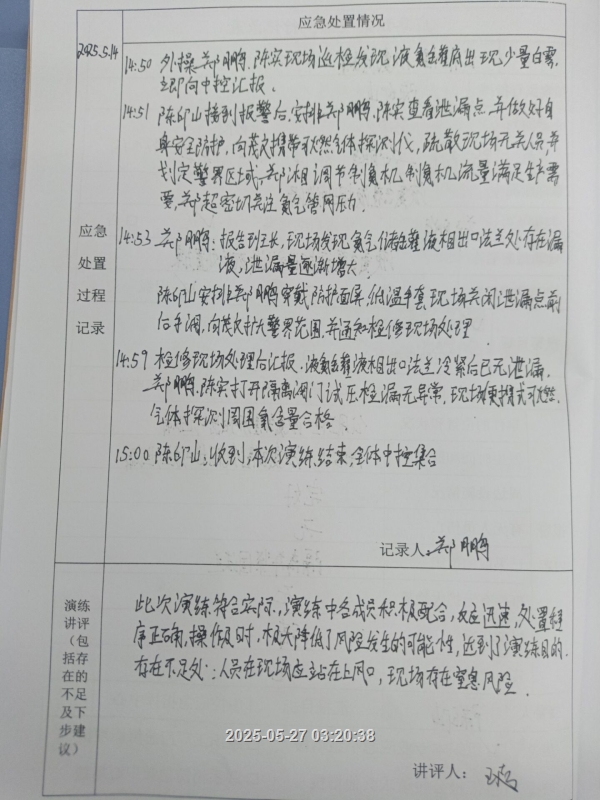 应急处置情况
2025.5.14
应急
处置
过程
记录
14:50 外操郑鹏鹏、陈实现场巡检发现液氮储罐底出现少量白雾,
立即向中控汇报。
14:51 陈邙山接到报警后,安排郑鹏鹏、陈实查看泄漏点,并做好自
身安全防护,向茂文携带可燃气体探测仪,疏散现场无关人员并
划定警界区域,郑湘调节制氮机,制氮机流量满足生产需
要,郑超密切关注氮气管网压力.
14:53 郑鹏鹏:报告班长,现场发现氮气储罐液相出口法兰处存在漏
液,泄漏量逐渐增大.
陈邙山安排郑鹏鹏穿戴防护面屏,低温手套,现场关闭泄漏点前
后手阀,向茂文扩大警界范围,并通知检修现场处理.
14:59 检修现场处理后汇报,液氮储罐液相出口法兰冷紧后已无泄漏,
郑鹏鹏、陈实打开隔离阀门试压检漏无异常,现场便携式可燃
气体探测周围氧含量合格.
15:00 陈邙山:收到,本次演练结束,全体中控集合
记录人:郑鹏鹏
演练
讲评
(包
括存
在的
不足
及下
步建
议)
此次演练符合实际,演练中各成员积极配合,反应迅速,处置程
序正确,操作及时,极大降低了风险发生的可能性,达到了演练目的.
存在不足处:人员在现场应站在上风口,现场存在窒息风险.
讲评人:
2025-05-27 03:20:38